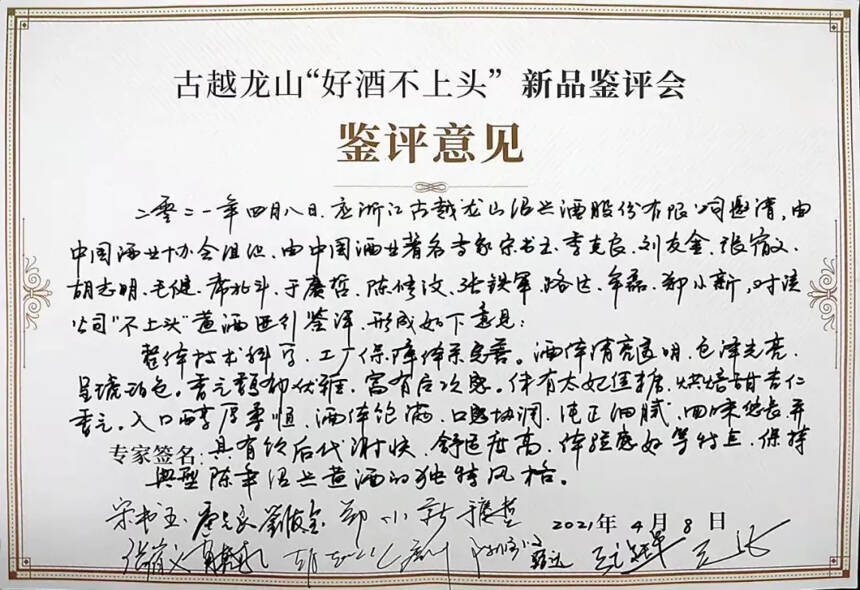 古越龙山“好酒不上头” 新品鉴评会
鉴评意见
二零二一年四月八日、应浙江古越龙山绍兴酒股份有限公司邀请,由
中国酒业协会组织、由中国酒业著名专家宋书玉、李克良、刘友金、张宿义、
胡志明、毛健、帅北斗、于广哲、陈修汶、张铁军、路达、牟磊、郑小新,对该
公司“不上头”黄酒进行鉴评,形成如下意见:
整体技术科学,工厂保障体系完善。酒体清亮透明,色泽光亮、
呈琥珀色。香气馥郁优雅,富有层次感。伴有太妃焦糖、烘焙甜杏仁
香气。入口醇厚柔顺,酒体饱满,口感协调,纯正细腻,回味悠长并
专家签名:具有饮后代谢快、舒适度高、体验感好等特点,保持
典型陈年绍兴黄酒的独特风格。
宋书玉 刘友金 郑小新 于广哲
2021年4月8日
张宿义 路达